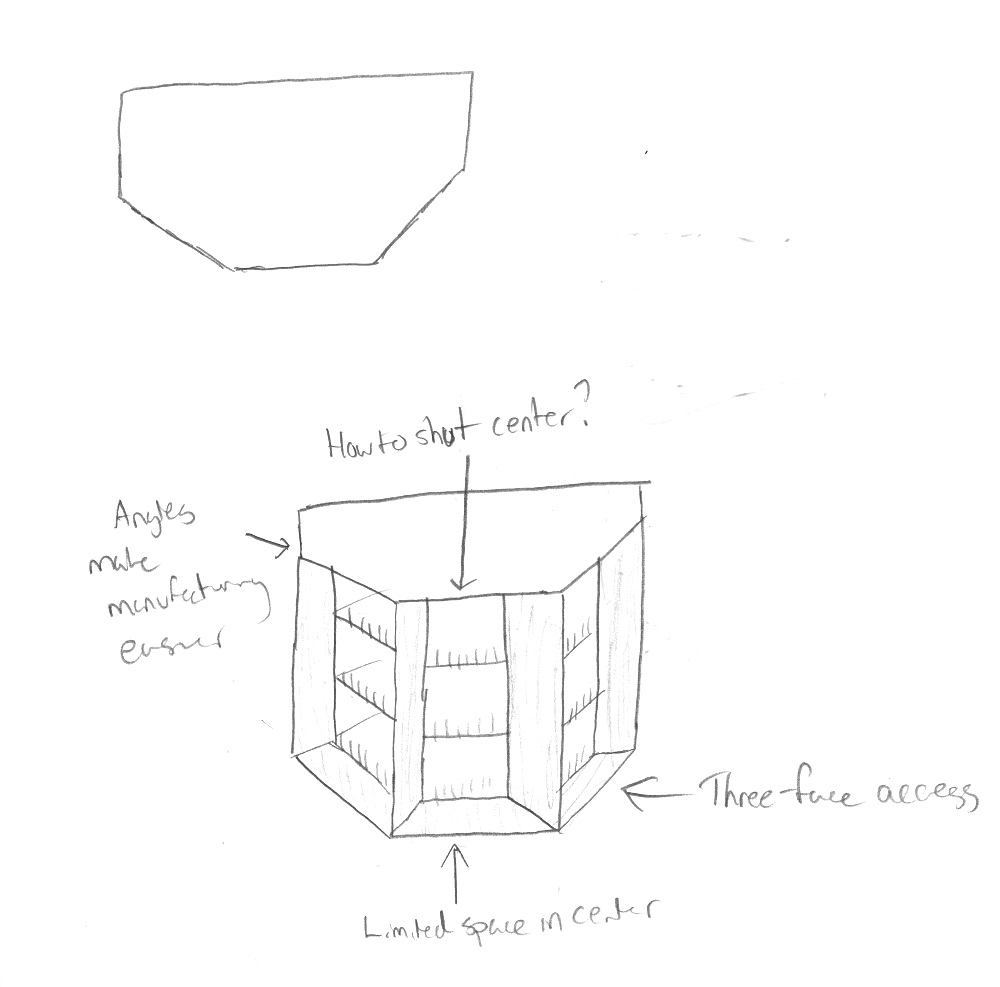 How to shut center?
Angles
make
manufacturing
easier
Three-face access
Limited space in center